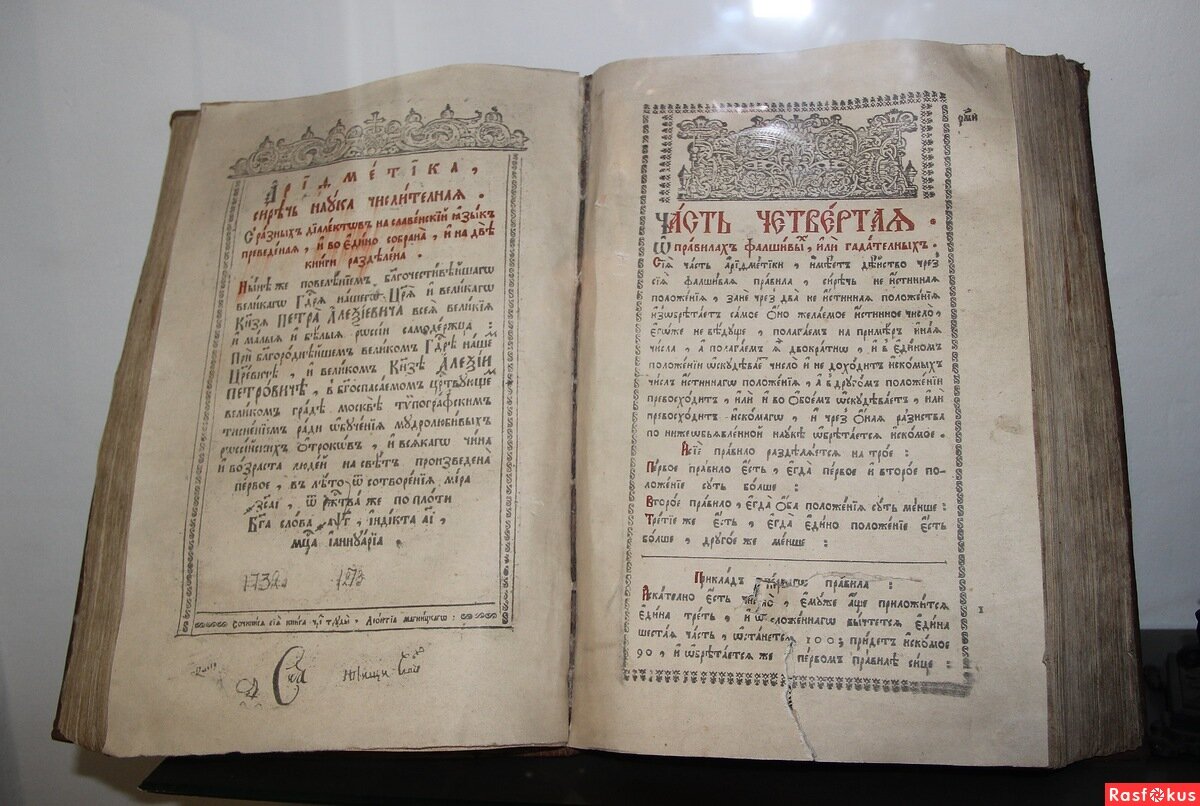 Арїѳме́тїка,
сирѣчь наука числителная.
С разныхъ дїалектѡвъ на славенскїй ꙗзыкъ
преведеная, и во едино собрана, и на двѣ
книги раздѣлена.
Нынѣ же повелѣнїемъ благочестивѣйшагѡ
великагѡ Гдⷭ҇рѧ нашегѡ Цр҃ѧ и великагѡ
Кн҃зѧ ПЕТРА АЛЕѮІЕВИЧА всеѧ великїѧ
и малыѧ и бѣлыѧ рѡссїи самодержца:
При бл҃городнѣйшемъ великомъ Гдⷭ҇рѣ нашемъ
Цр҃евичѣ, и великомъ Кн҃зѣ АЛЕѮІИ
ПЕТРОВИЧѢ, в бг҃оспасаемом црⷭ҇твующемъ
великом градѣ москвѣ тѵпографскимъ
тисненїемъ ради ѡбученїѧ мудролюбивыхъ
рѡссїйскихъ ѻтрокѡвъ, и всѧкагѡ чина
и возраста людей на свѣтъ произведена
первое, в лѣто ѿ сотворенїѧ мїра
҂зсаі, ѿ ржⷭ҇тва же по плоти
Бг҃а слова ҂аѱг, індїкта аі,
мцⷭ҇а їаннуарїа.
1732 1273
Сочинисѧ сїѧ книга чрез труды, Леонтїа магницкагѡ:
рм҃и
ЧАСТЬ ЧЕТВЕРТАѦ.
Ѡ правилахъ фалшивыхъ, или гадателныхъ.
Сїѧ часть арїѳметїки, имѣетъ дѣйство чрез
сїѧ фалшиваѧ правила, сирѣчь не истиннаѧ
положенїѧ, зане чрез два не истиннаѧ положенїѧ
изѡбрѣтаетъ самое ѻно желаемое истинное число,
егѡже не вѣдуще, полагаем на примѣр инаѧ
числа, а полагаем ѧ двократнѡ, и в единомъ
положенїи ѡскудѣваетъ число и не доходит искомыхъ
числъ истиннагѡ положенїѧ, а в другом положенїи
превосходит, или и во обоем ѡскудѣваетъ, или
превосходит искомагѡ, и чрез ѻнаѧ разнства
по нижеобьѧвленной наукѣ ѡбрѣтаетсѧ искомое.
А сїе правило раздѣлѧетсѧ на трое:
Первое правило есть, егда первое и второе по-
ложенїе суть болше:
Второе правило, егда оба положенїѧ суть менше:
Третїе же есть, егда едино положенїе есть
болше, другое же менше:
Прикладъ первагѡ правила:
Искателно есть число, емуже аще приложитсѧ
едина треть, и ѿ сложеннагѡ вычтетсѧ едина
шестаѧ часть, ѡстанетсѧ 100; прїидетъ искомое
90, и ѡбрѣтаетсѧ же первомъ правилѣ сице: